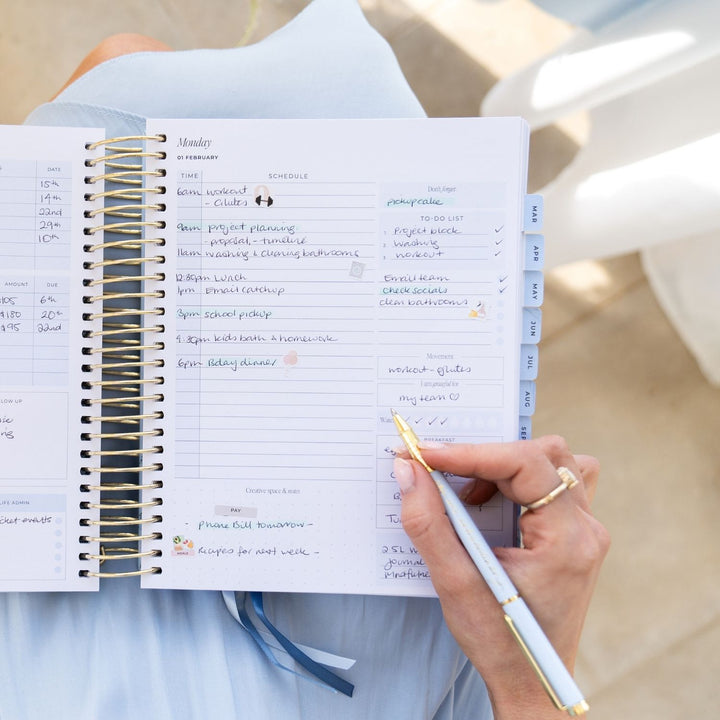 DATE
15th
14th
22nd
29th
10th
AMOUNT DUE
$105 6th
$180 20th
$95 22nd
LOW UP
LIFE ADMIN
cket events
Monday
01 FEBRUARY
TIME SCHEDULE
6am workout
- Glutes
9am project planning
- proposal - timeline
11am washing & cleaning bathrooms
12:30pm Lunch
1pm Email catchup
3pm school pickup
4:30pm kids bath & homework
6pm Bday dinner
Creative space & notes
PAY
- Phone Bill tomorrow -
Recipes for next week -
Don't forget
pickup cake
TO-DO LIST
1 Project block ✓
2 washing ✓
3 workout ✓
Email team ✓
check socials ✓
clean bathrooms
Movement
workout - glutes
I am grateful for
my team ♡
Wat ✓ ✓ ✓
BREAKFAST
2.5L W
Journal
mindful
MAR
APR
MAY
JUN
JUL
AUG
SEP